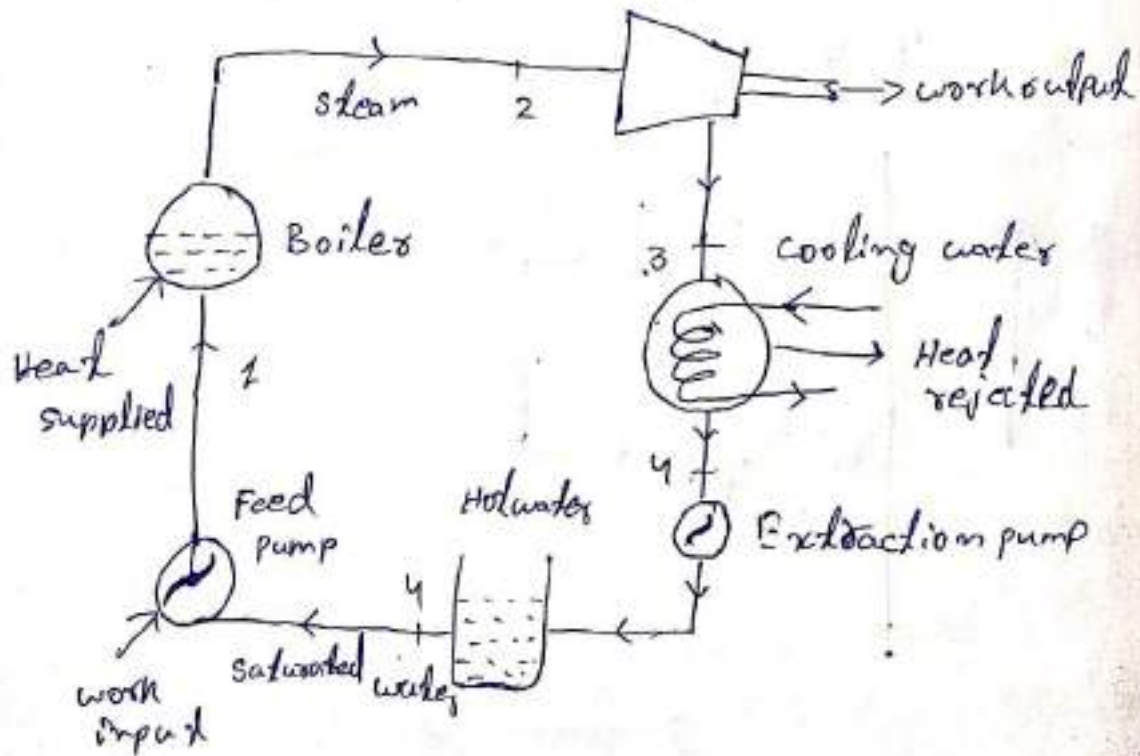 steam
2
work output
Boiler
.3
cooling water
Heat
supplied
1
Heat
rejected
4
Feed
pump
Hotwater
Extraction pump
4
Saturated water
work
input